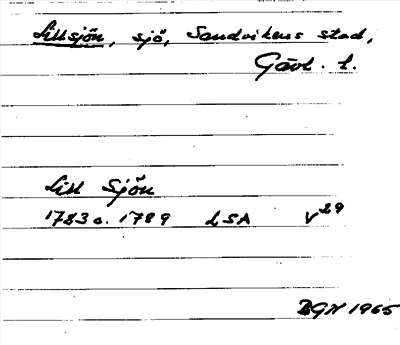 Lillsjön, sjö, Sandvikens stad,
Gävl. l.
Lill Sjön
1783 o. 1789 LSA V 29
BGN 1965